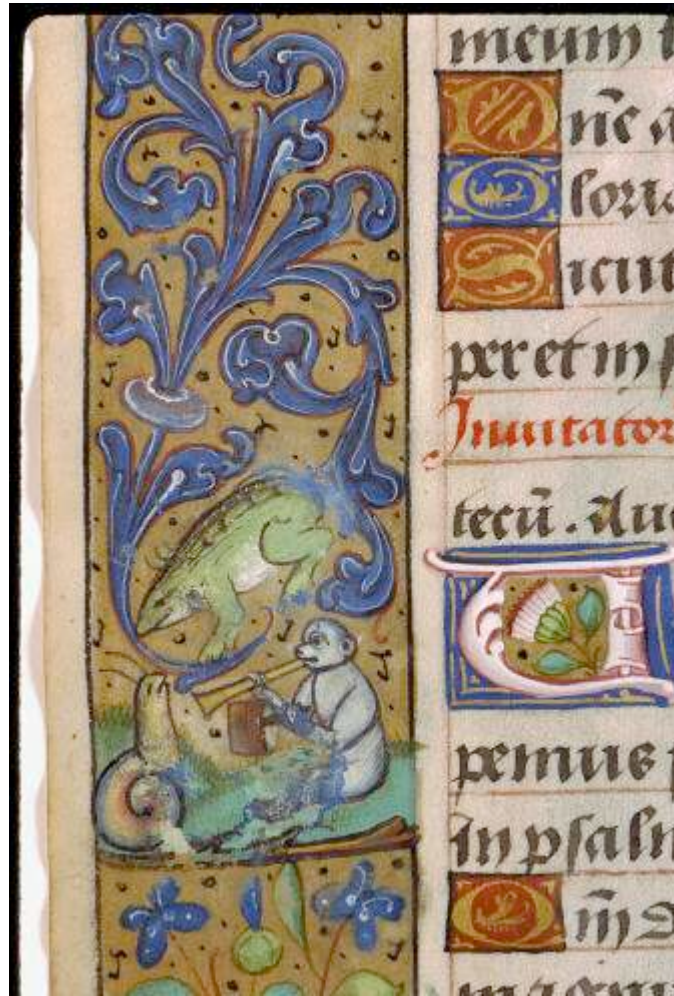 meum
Dñe a
Gloria
Sicut
per et in s
Inuitator
tecū. Aue
pemus
in psalm
Qm̄ d
magnu